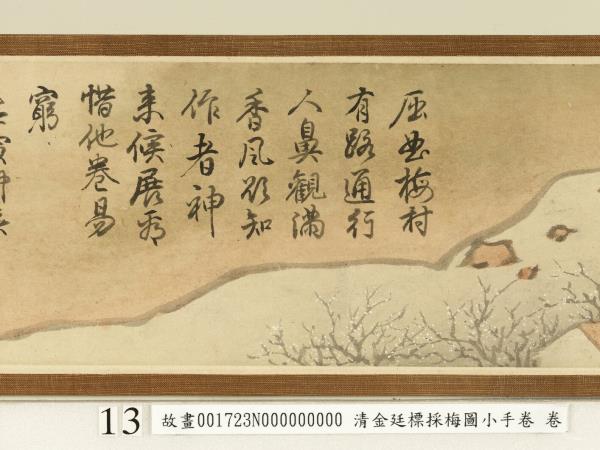 屈曲梅村
有路通行
人鼻觀滿
香風欲知
作者神
来候展看
惜他卷易
窮
13 故畫001723N000000000 清金廷標採梅圖小手卷 卷